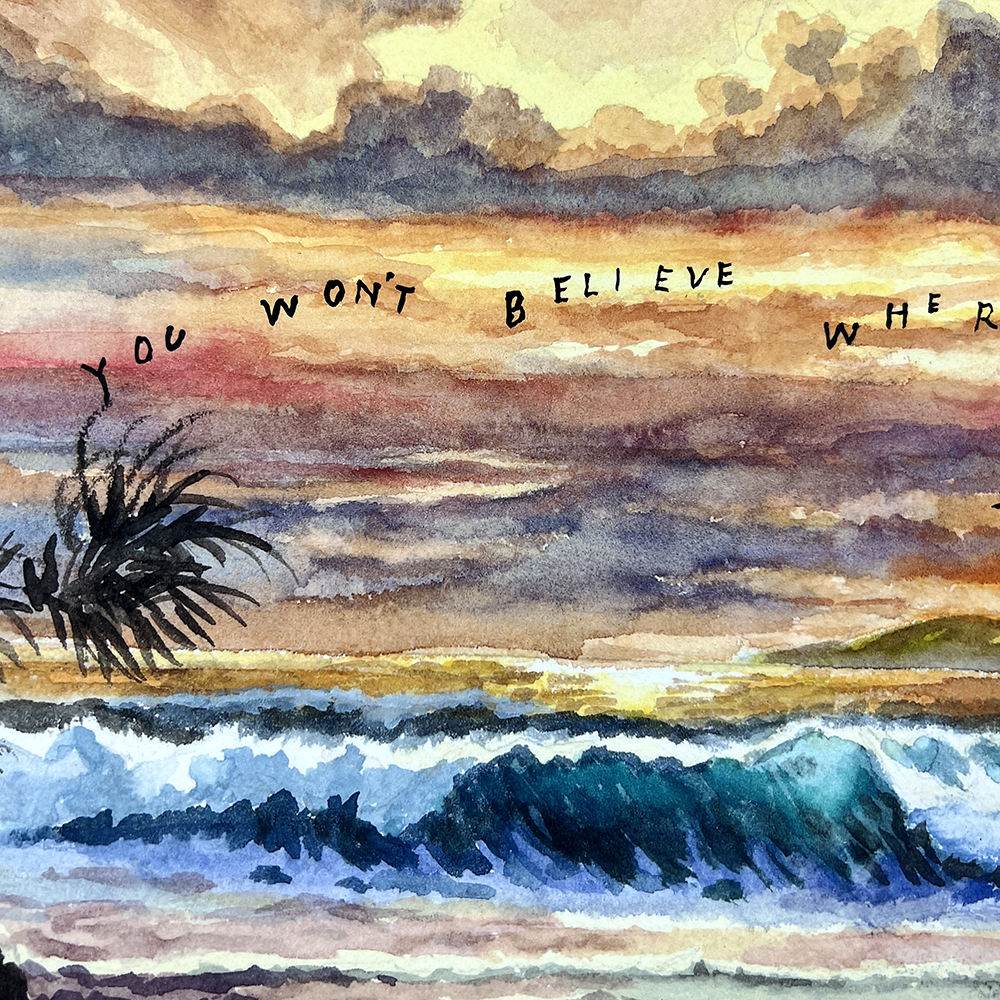 YOU WON'T BELIEVE WHER